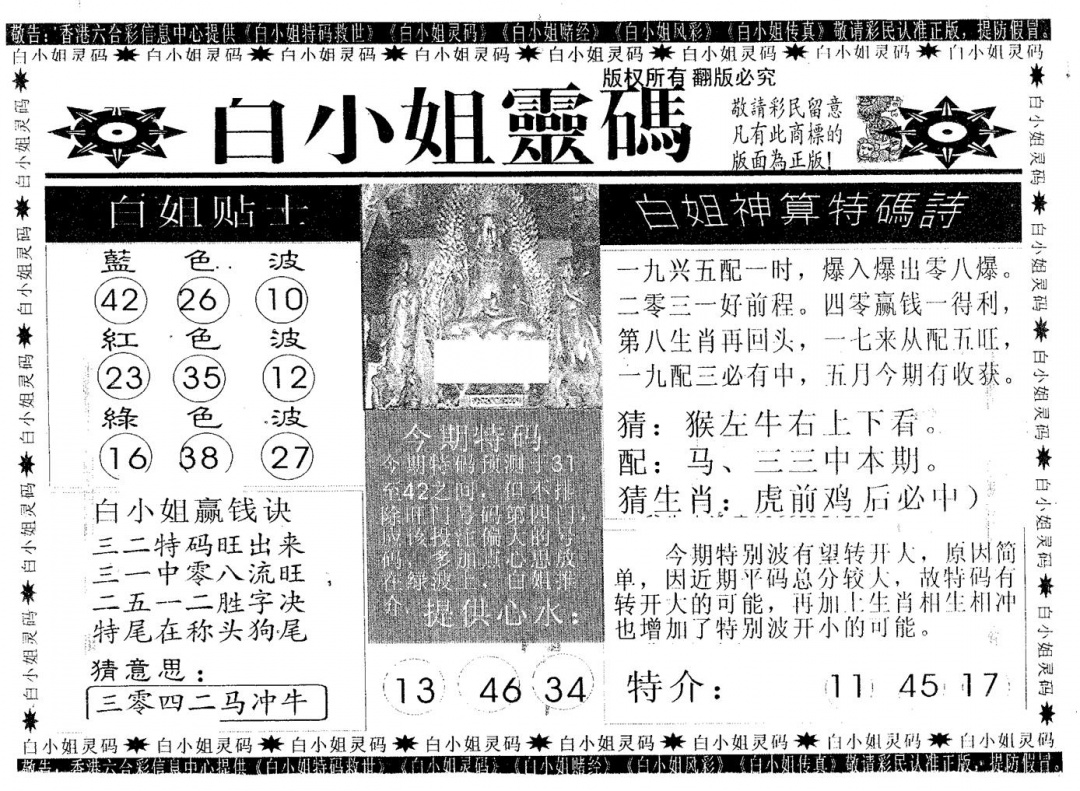 敬告：香港六合彩信息中心提供《白小姐特码救世》《白小姐灵码》《白小姐赌经》《白小姐风彩》《白小姐传真》敬请彩民认准正版，提防假冒。
白小姐灵码 白小姐灵码 白小姐灵码 白小姐灵码 白小姐灵码 白小姐灵码 白小姐灵码 白小姐灵码
版权所有 翻版必究
白小姐靈碼
敬請彩民留意
凡有此商標的
版面為正版!
白姐贴士
藍色波
42 26 10
紅色波
23 35 12
綠色波
16 38 27
白小姐赢钱诀
三二特码旺出来
三一中零八流旺
二五一二胜字决
特尾在称头狗尾
猜意思：
三零四二马冲牛
今期特码
今期特码预测于31
至42之间，但不排
提供心水：
13 46 34
白姐神算特碼詩
一九兴五配一时，爆入爆出零八爆。
二零三一好前程。四零赢钱一得利，
第八生肖再回头，一七来从配五旺，
一九配三必有中，五月今期有收获。
猜：猴左牛右上下看。
配：马、三三中本期。
猜生肖：虎前鸡后必中）
今期特别波有望转开大，原因简
单，因近期平码总分较大，故特码有
转开大的可能，再加上生肖相生相冲
也增加了特别波开小的可能。
特介： 11 45 17
白小姐灵码 白小姐灵码 白小姐灵码 白小姐灵码 白小姐灵码
白小姐灵码 白小姐灵码 白小姐灵码 白小姐灵码 白小姐灵码
白小姐灵码 白小姐灵码 白小姐灵码 白小姐灵码 白小姐灵码 白小姐灵码 白小姐灵码 白小姐灵码
敬告：香港六合彩信息中心提供《白小姐特码救世》《白小姐灵码》《白小姐赌经》《白小姐风彩》《白小姐传真》敬请彩民认准正版，提防假冒。